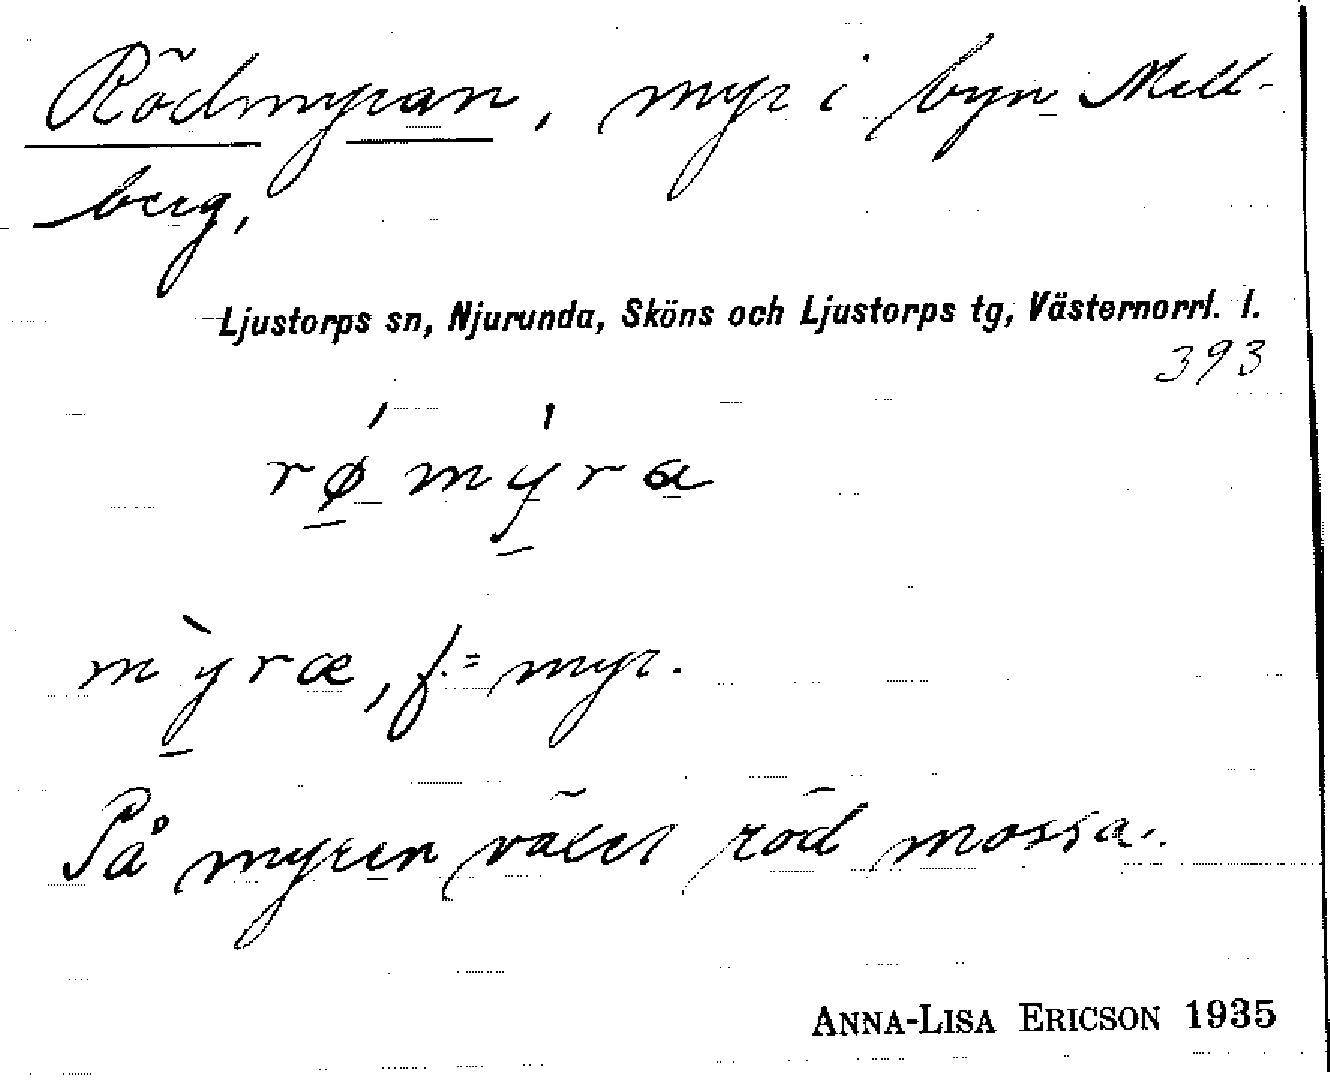 Rödmyran, myr i byn Mell-
berg,
Ljustorps sn, Njurunda, Sköns och Ljustorps tg, Västernorrl. l.
393
rǿ̱mý̱ra
mỳ̱ræ, f. = myr.
På myren växer röd mossa.
ANNA-LISA ERICSON 1935